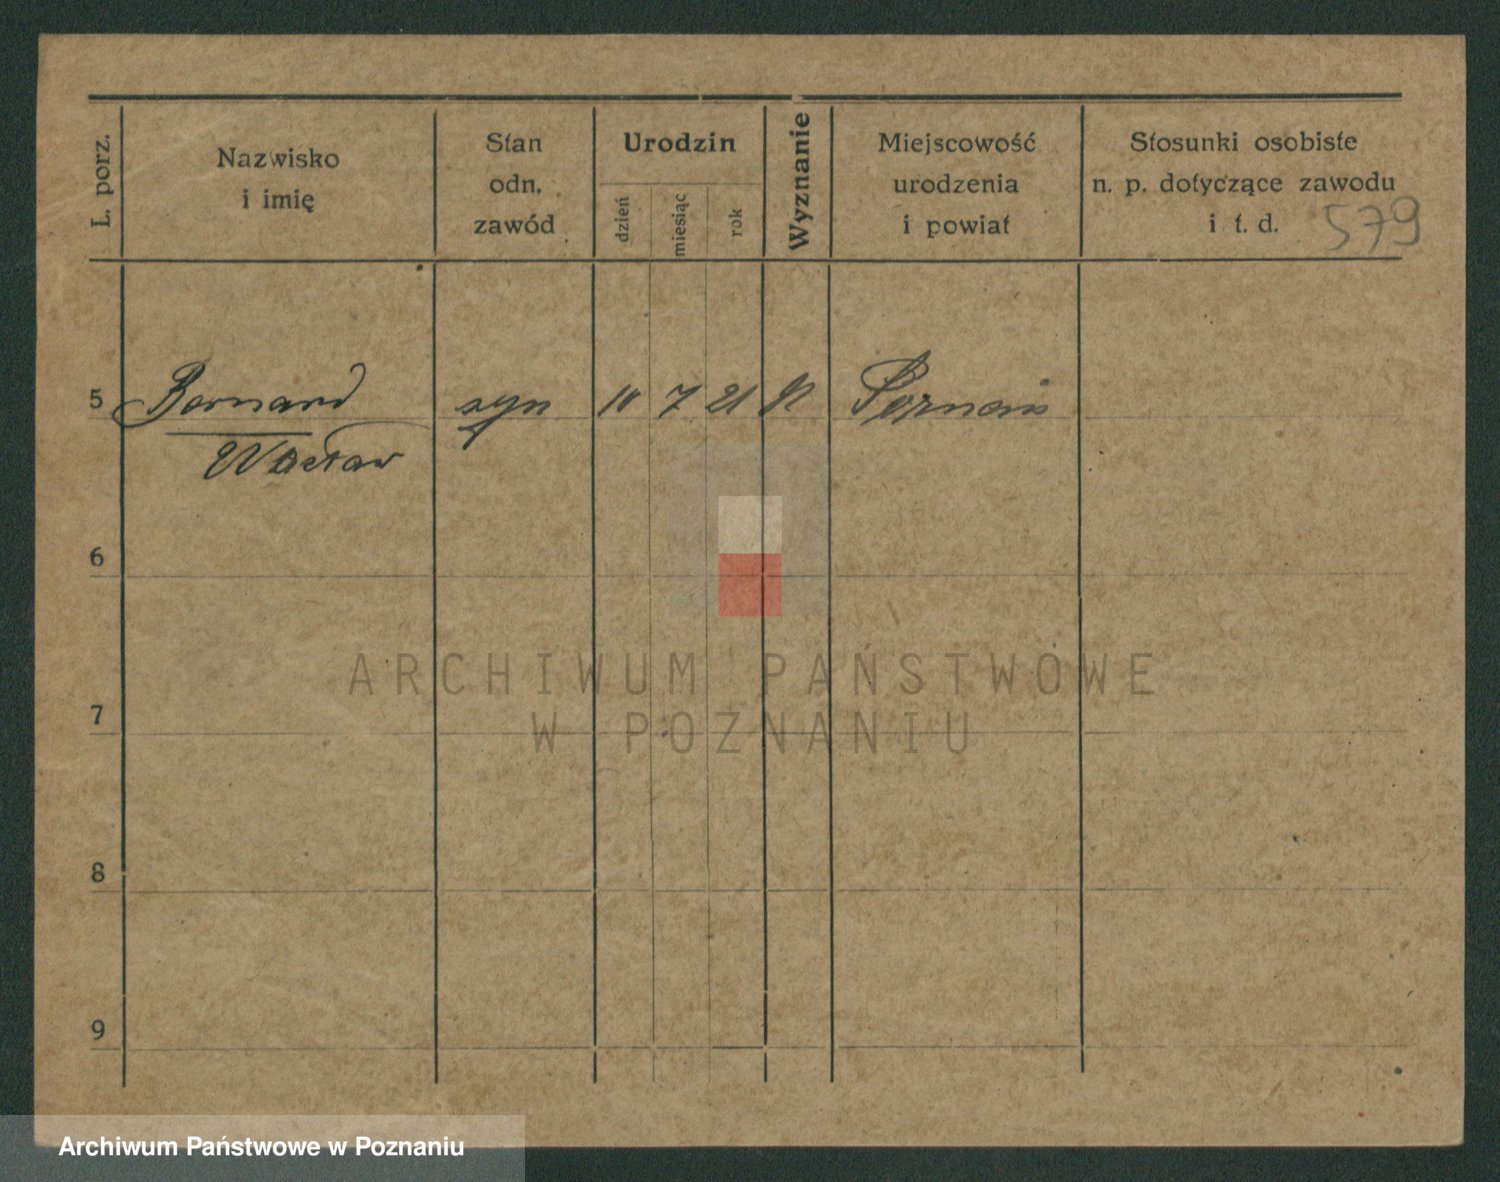 L. porz.
Nazwisko
i imię
Stan
odn.
zawód
Urodzin
dzień
miesiąc
rok
Wyznanie
Miejscowość
urodzenia
i powiat
Stosunki osobiste
n. p. dotyczące zawodu
i t. d.
579
5 Bernard syn 10 7 21 Poznań
Wacław
6
7
8
9
ARCHIWUM PAŃSTWOWE
W POZNANIU
Archiwum Państwowe w Poznaniu